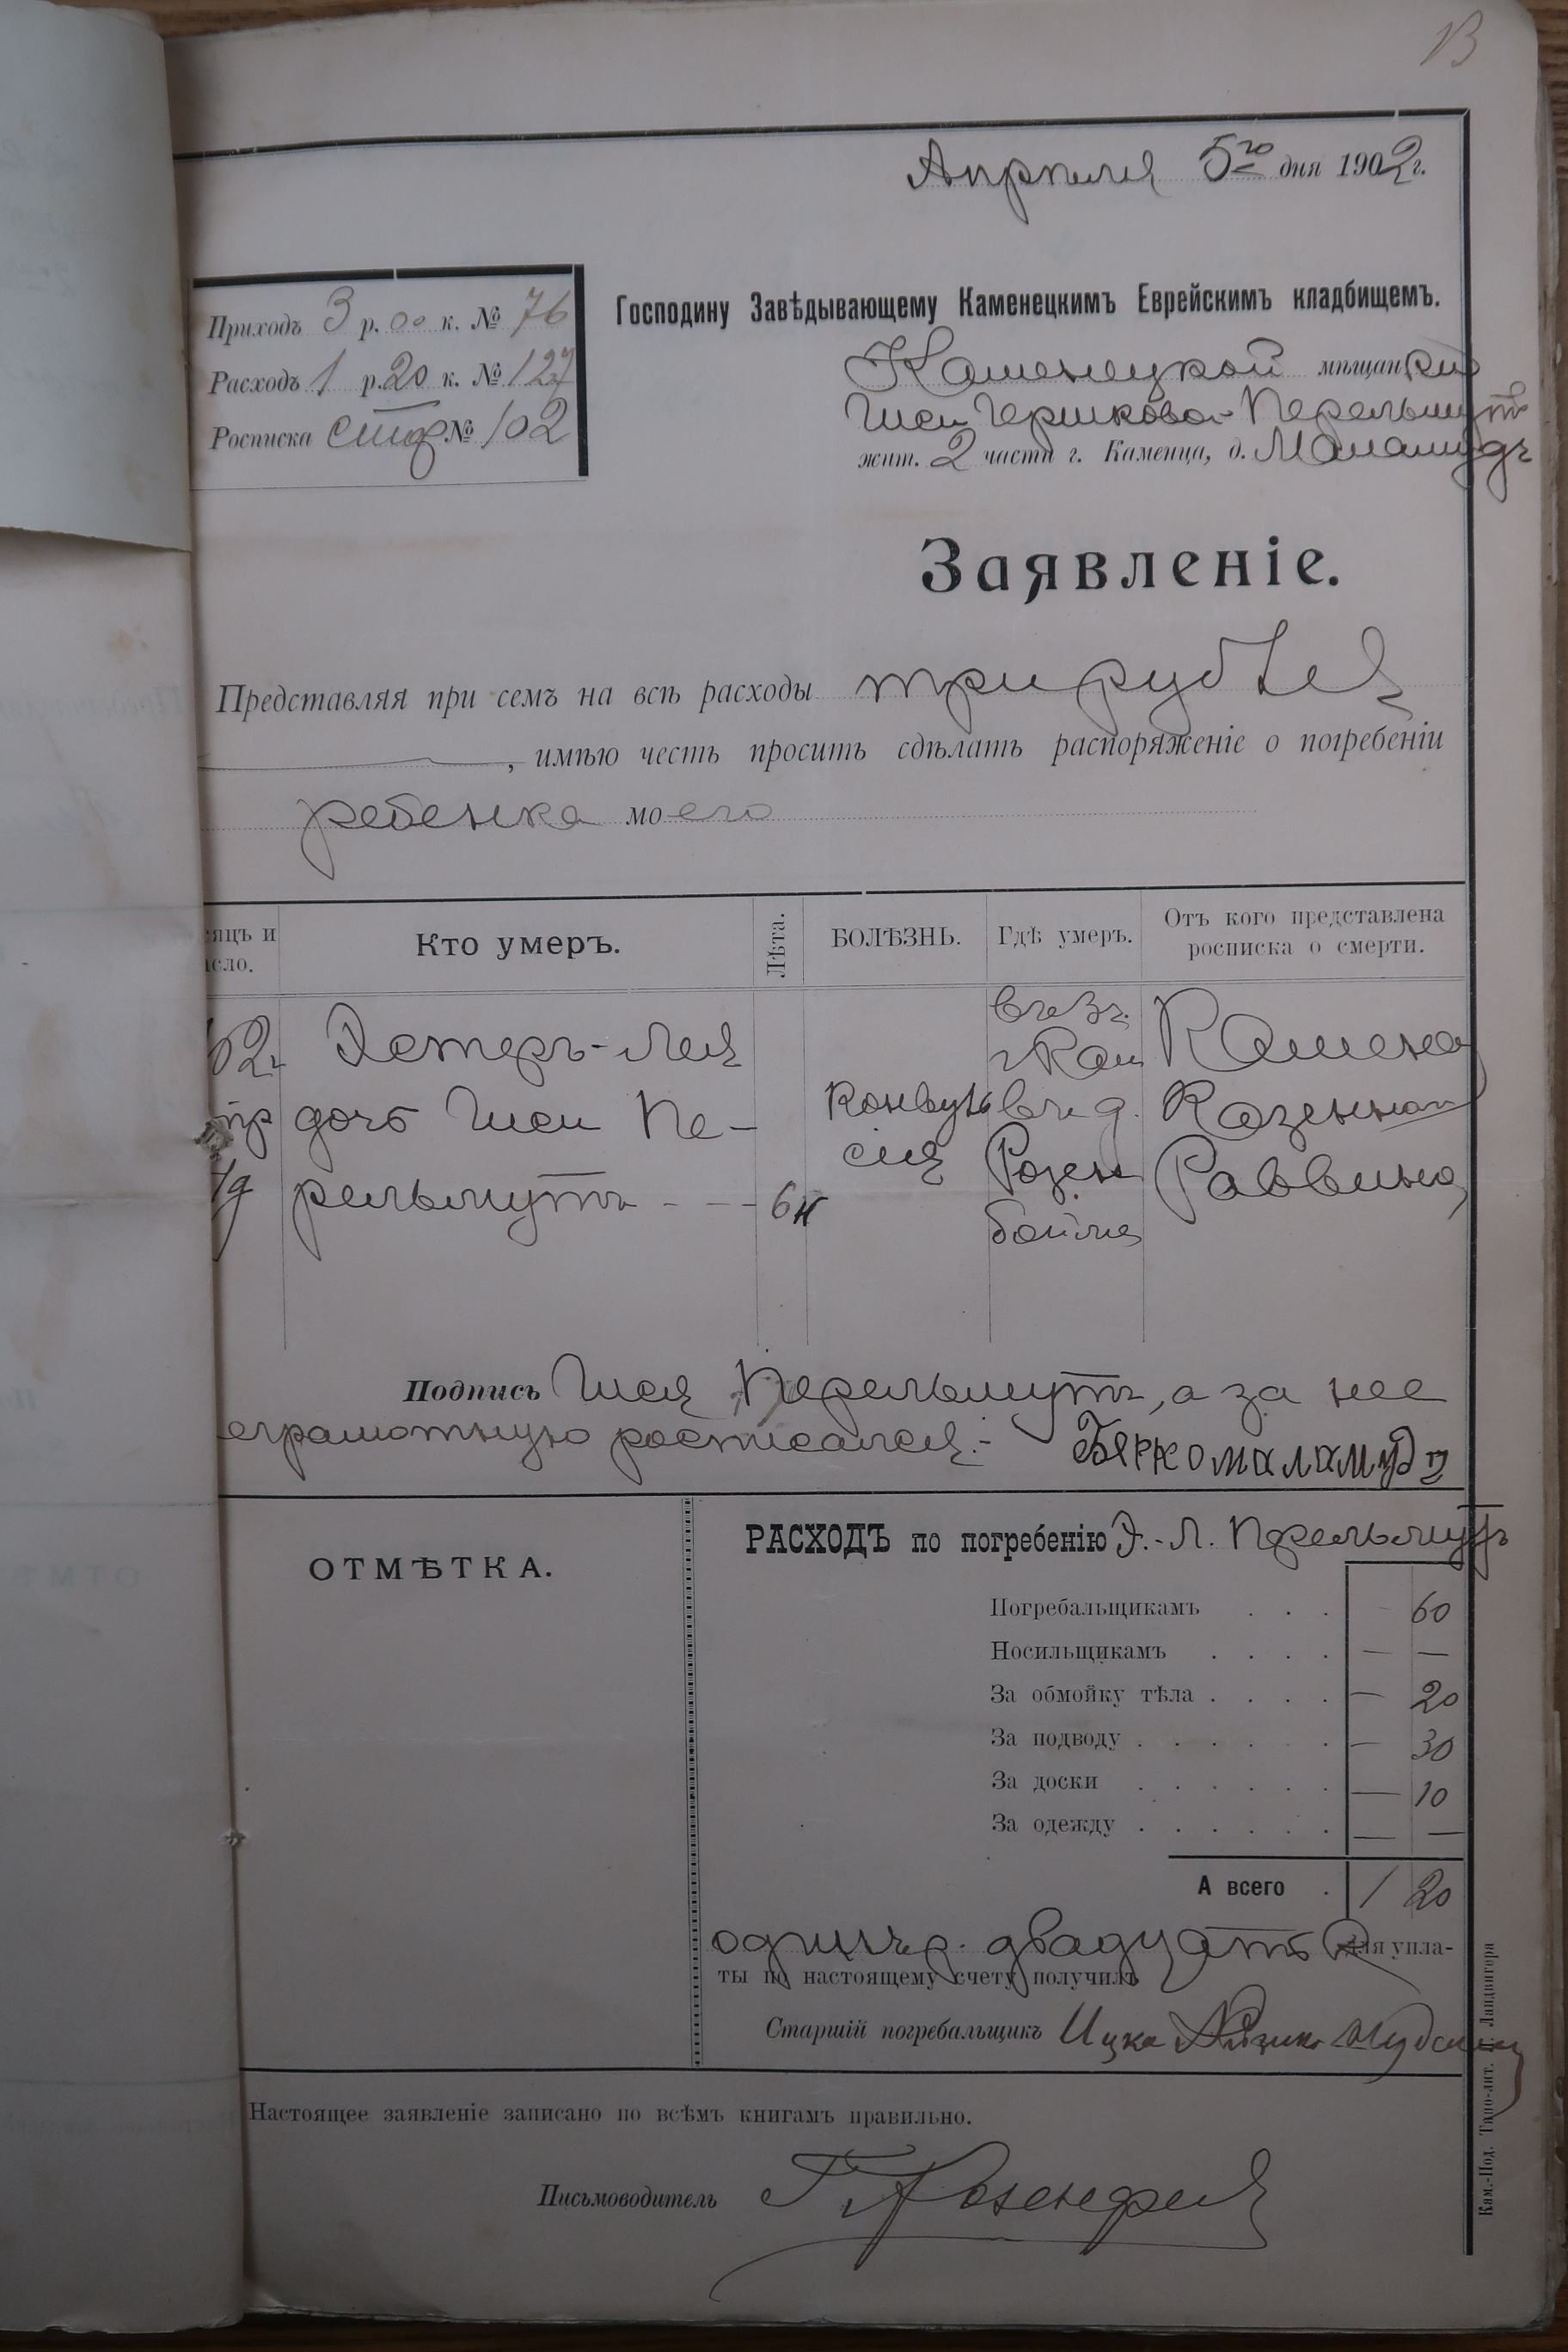 13
Апрѣля 5го дня 1902 г.
Приходъ 3 р. 00 к. № 76
Расходъ 1 р. 20 к. № 127
Росписка стар № 102
Господину Завѣдывающему Каменецкимъ Еврейскимъ кладбищемъ.
Каменецкой мѣщанки
Шси Гершковой Перельмутъ
жит. 2 части г. Каменца, д. Маламудъ
Заявленіе.
Представляя при семъ на всѣ расходы три рубля
, имѣю честь просить сдѣлать распоряженіе о погребеніи
ребенка моего
сяцъ и
исло.
Кто умеръ.
Лѣта.
БОЛѢЗНЬ.
Гдѣ умеръ.
Отъ кого представлена
росписка о смерти.
02г
пр
Эстеръ-Лея
дочь Шси Пе-
рельмутъ
6н
Конвуль
сія
въ 3 ч.
г Кам
въ д.
Розен
бойма
Камена
Казеннаг
Раввина
Подпись Шся Перельмутъ, а за нее
еграмотную росписался:- Бяркомаламудъ
ОТМѢТКА.
РАСХОДЪ по погребенію Э.-Л. Перельмутъ
Погребальщикамъ . . . 60
Носильщикамъ . . . . — —
За обмойку тѣла . . . . — 20
За подводу . . . . . . — 30
За доски . . . . . . — 10
За одежду . . . . . . — —
А всего . 1 20
одинъ р. двадцать к для упла-
ты по настоящему счету получилъ
Старшій погребальщикъ Ицка
Настоящее заявленіе записано по всѣмъ книгамъ правильно.
Письмоводитель
Кам.-Под. Типо-лит. Ландвигера